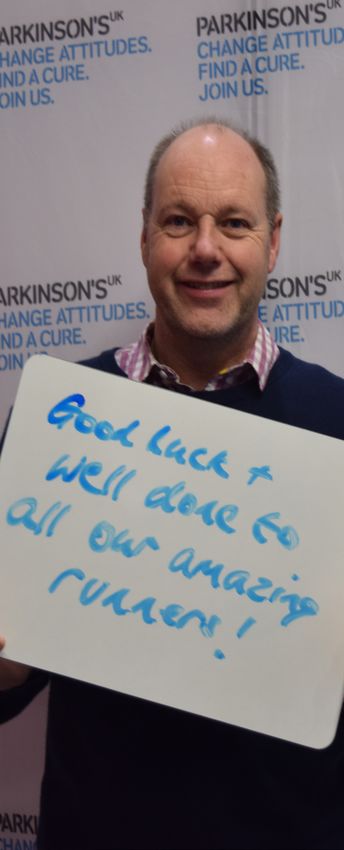 PARKINSON'S UK
CHANGE ATTITUDES.
FIND A CURE.
JOIN US.
ARKINSON'S UK
HANGE ATTITUDES.
IND A CURE.
OIN US.
ARKINSON'S
HANGE ATTITUDES.
IND A CURE.
OIN
INSON'S UK
ATTITUD
URE.
Good luck +
well done to
all our amazing
runners!
PARKI
CHAN